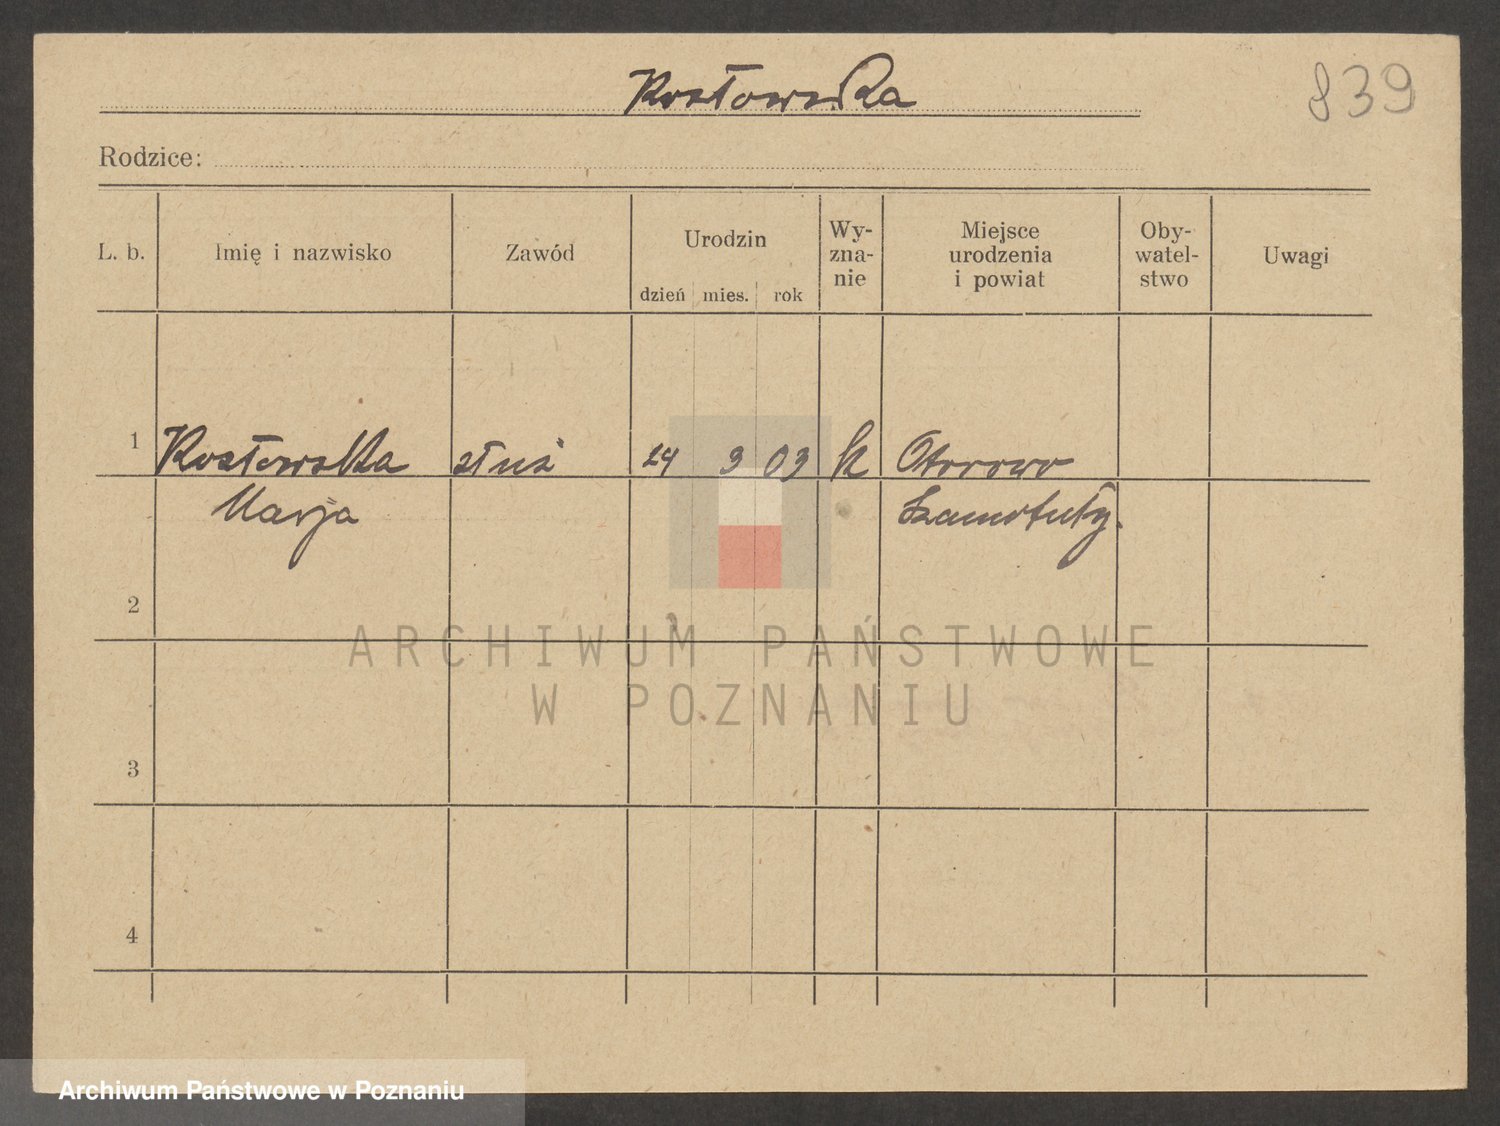 Kozłowska
839
Rodzice:
L. b. Imię i nazwisko Zawód Urodzin dzień mies. rok Wy-zna-nie Miejsce urodzenia i powiat Oby-watel-stwo Uwagi
1 Kozłowska służ 24 3 03 k Otorowo
Marja Szamotuły.
2
3
4
ARCHIWUM PAŃSTWOWE
W POZNANIU
Archiwum Państwowe w Poznaniu